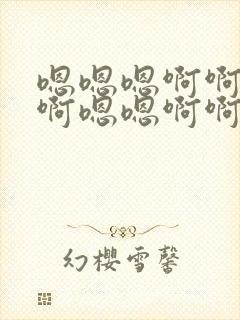 嗯嗯嗯啊啊
啊嗯嗯啊啊
幻樱雪馨